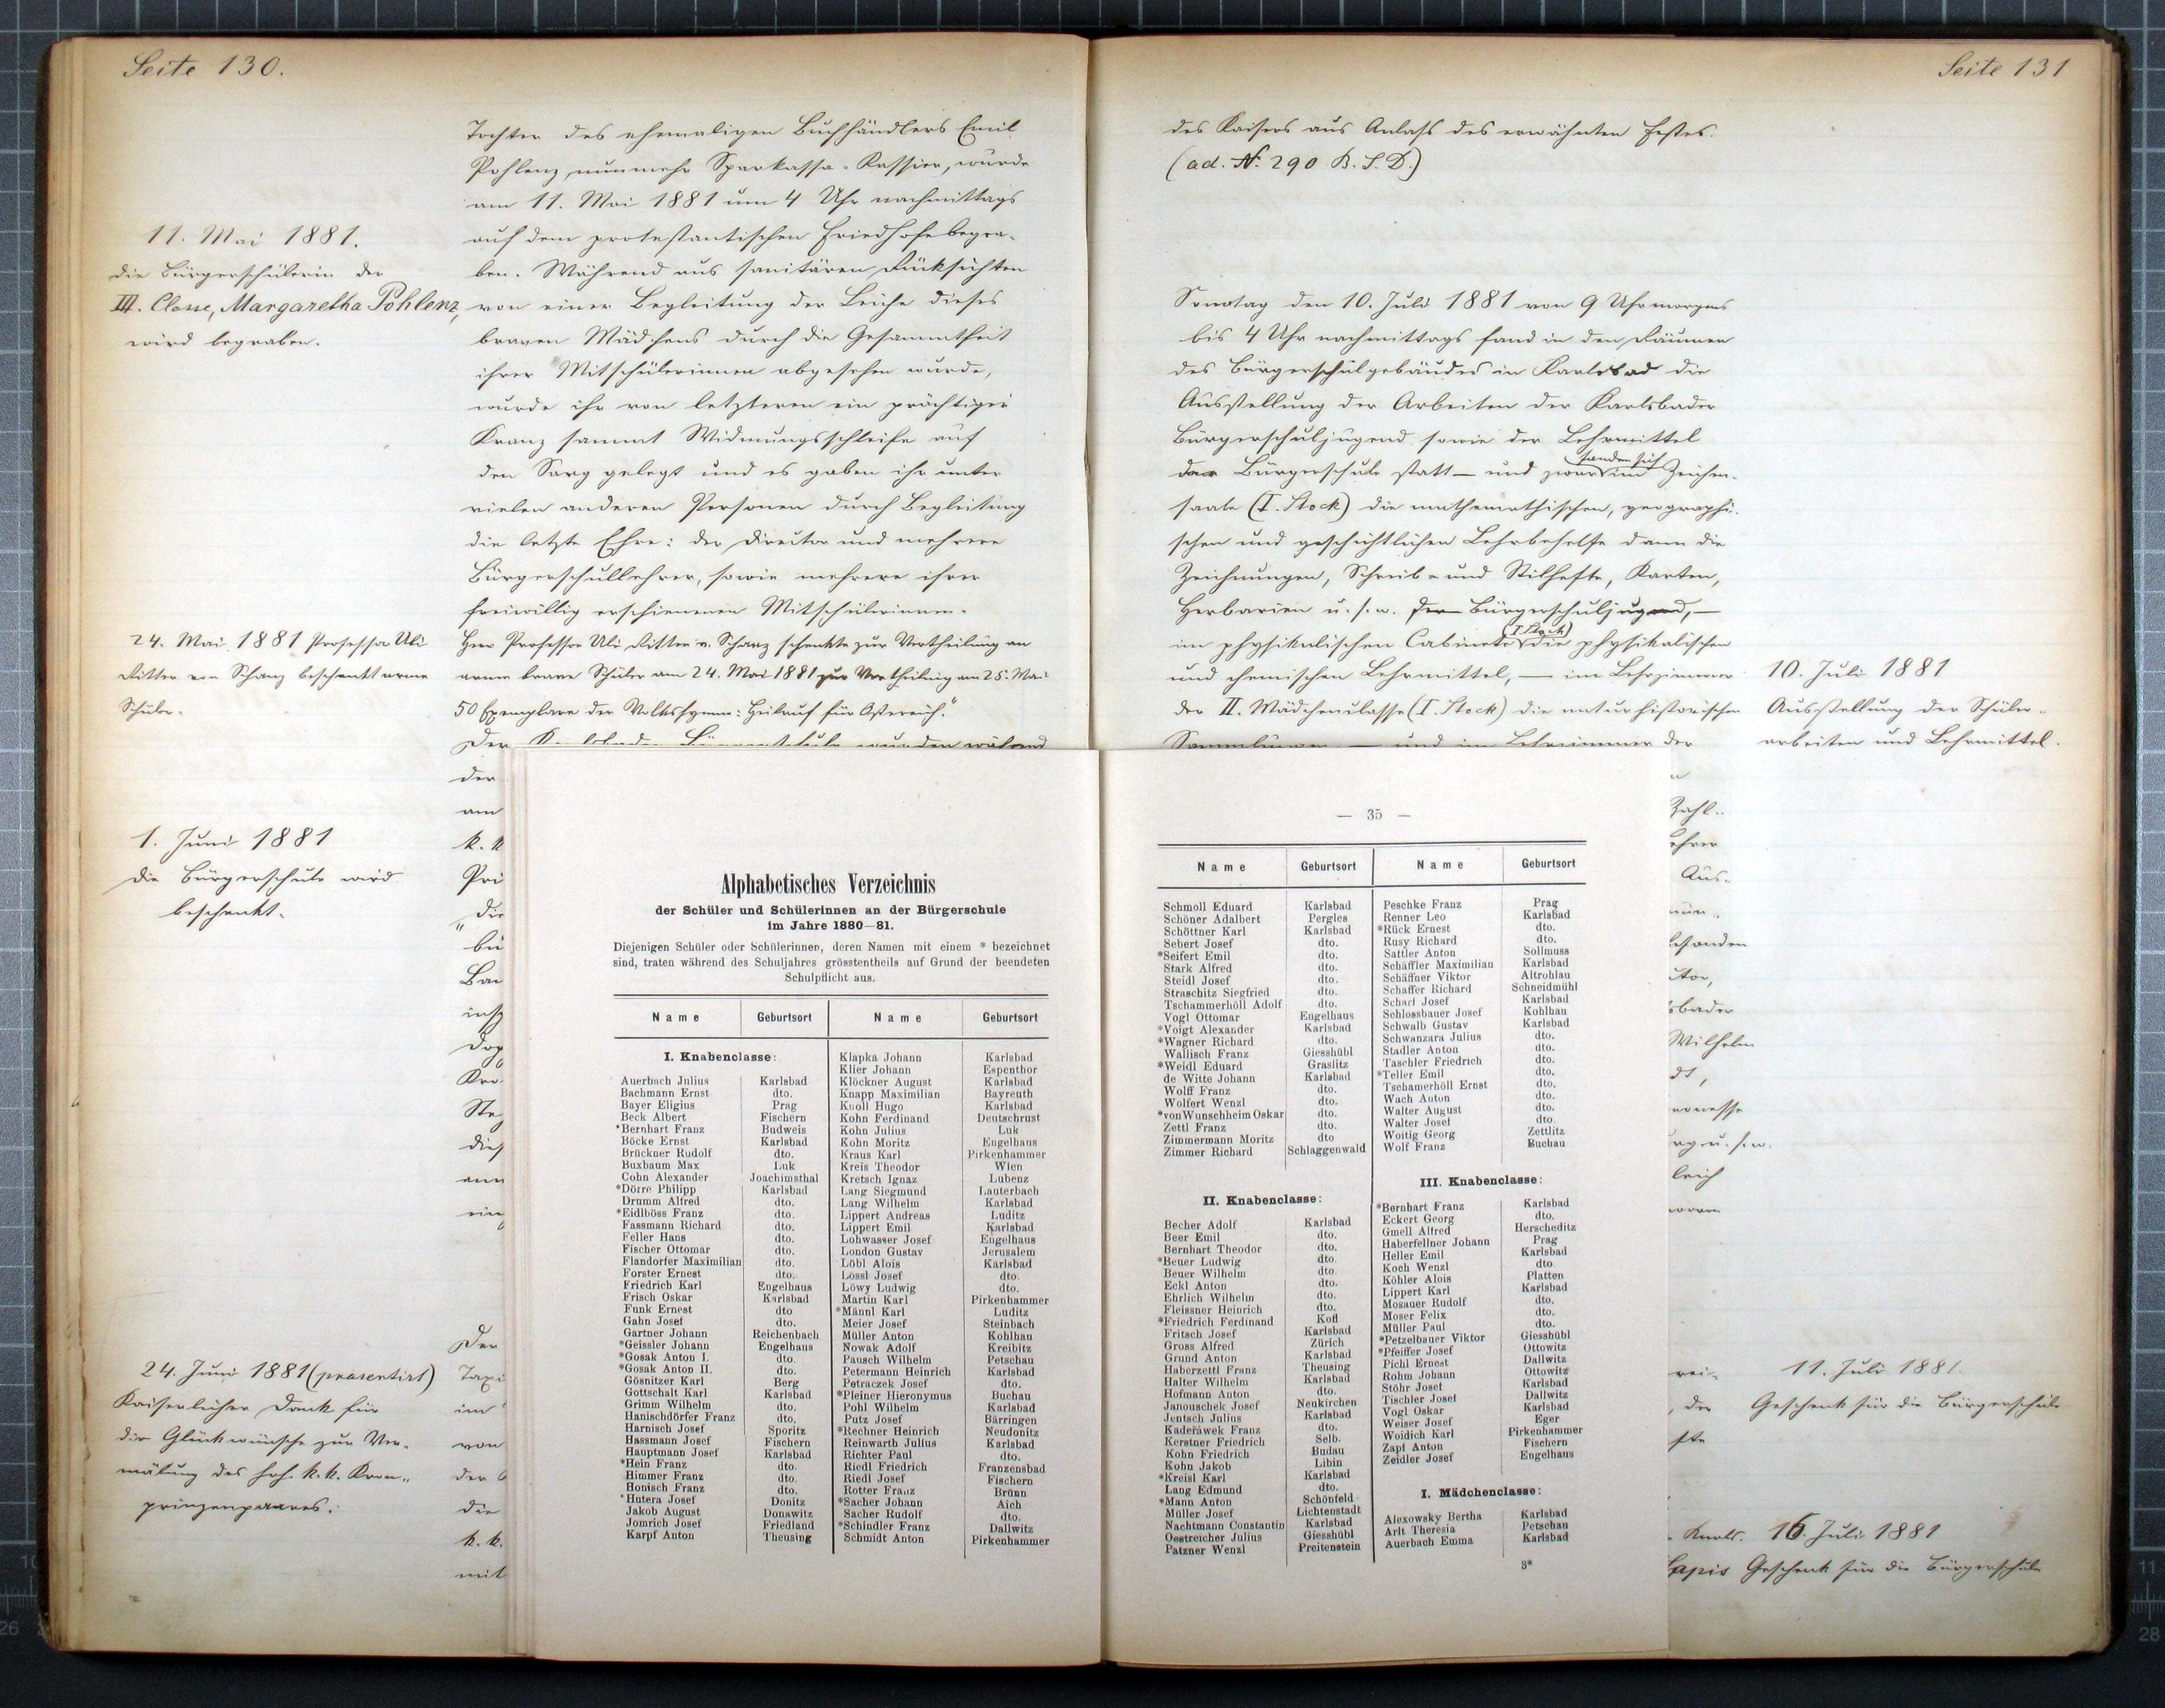 Seite 130.
11. Mai 1881.
Die Bürgerschülerin der
III. Classe, Margaretha Pohlenz,
wird begraben.
24. Mai 1881 Professor Uli
Ritter von Schanz beschenkt arme
Schüler.
1. Juni 1881
Die Bürgerschule wird
beschenkt.
24. Juni 1881 (praesentirt)
Kaiserlicher Dank für
die Glückwünsche zur Ver-
mälung des hoh. k. k. Kron-
prinzenpaares.
Tochter des ehemaligen Buchhändlers Emil
Pohlenz nunmehr Sparkassa-Kassier, wurde
am 11. Mai 1881 um 4 Uhr nachmittags
auf dem protestantischen Friedhofe begra-
ben. Während aus sanitären Rücksichten
von einer Begleitung der Leiche dieses
braven Mädchens durch die Gesammtheit
ihrer Mitschülerinnen abgesehen wurde,
wurde ihr von letzteren ein prächtiger
Kranz sammt Widmungsschleife auf
den Sarg gelegt und es gaben ihr unter
vielen anderen Personen durch Begleitung
die letzte Ehre: der Director und mehrere
Bürgerschullehrer, sowie mehrere ihrer
freiwillig erschienenen Mitschülerinnen.
Herr Professor Uli Ritter v. Schanz schenkte zur Vertheilung an
arme brave Schüler am 24. Mai 1881 zur Vertheilung am 25. Mai
50 Exemplare der Volkshymne: Heilruf für Österreich."
Der Karlsbader Bürgerschule wurden während
der
am
k. k
Pri
die
Der
im
von
der
die
k. k.
mit
Seite 131
des Kaisers aus Anlaß des erwähnten Festes.
(ad. N. 290 B. S. D.)
Sonntag den 10. Juli 1881 von 9 Uhr morgens
bis 4 Uhr nachmittags fand in den Räumen
des Bürgerschulgebäudes in Karlsbad die
Ausstellung der Arbeiten der Karlsbader
Bürgerschuljugend sowie der Lehrmittel
der Bürgerschule statt — und zwar fanden sich im Zeichen-
saale (I. Stock) die mathematischen, geographi-
schen und geschichtlichen Lehrbehelfe dann die
Zeichnungen, Schreib- und Stilhefte, Karten,
Herbarien u. s. w. der Bürgerschuljugend, —
im physikalischen Cabinete (I. Stock) die physikalischen
und chemischen Lehrmittel, — im Lehrzimmer
der II. Mädchenclasse (I. Stock) die naturhistorischen
Sammlungen — und im Lehrzimmer der
10. Juli 1881
Ausstellung der Schüler-
arbeiten und Lehrmittel.
Wilhelm
11. Juli 1881.
Geschenk für die Bürgerschule
16. Juli 1881
Geschenk für die Bürgerschule
Alphabetisches Verzeichnis
der Schüler und Schülerinnen an der Bürgerschule
im Jahre 1880—81.
Diejenigen Schüler oder Schülerinnen, deren Namen mit einem * bezeichnet
sind, traten während des Schuljahres grösstentheils auf Grund der beendeten
Schulpflicht aus.
Name Geburtsort Name Geburtsort
I. Knabenclasse:
Auerbach Julius Karlsbad
Bachmann Ernst dto.
Bayer Eligius Prag
Beck Albert Fischern
*Bernhart Franz Budweis
Böcke Ernst Karlsbad
Brückner Rudolf dto.
Buxbaum Max Luk
Cohn Alexander Joachimsthal
*Dörre Philipp Karlsbad
Drumm Alfred dto.
*Eidlböss Franz dto.
Fassmann Richard dto.
Feller Hans dto.
Fischer Ottomar dto.
Flandorfer Maximilian dto.
Forster Ernest dto.
Friedrich Karl Engelhaus
Frisch Oskar Karlsbad
Funk Ernest dto
Gahn Josef dto.
Gartner Johann Reichenbach
*Geissler Johann Engelhaus
*Gosak Anton I. dto.
*Gosak Anton II. dto.
Gösnitzer Karl Berg
Gottschalt Karl Karlsbad
Grimm Wilhelm dto.
Hanischdörfer Franz dto.
Harnisch Josef Sporitz
Hassmann Josef Fischern
Hauptmann Josef Karlsbad
*Hein Franz dto.
Himmer Franz dto.
Honisch Franz dto.
*Hutera Josef Donitz
Jakob August Donawitz
Jomrich Josef Friedland
Karpf Anton Theusing
Klapka Johann Karlsbad
Klier Johann Espenthor
Klöckner August Karlsbad
Knapp Maximilian Bayreuth
Knoll Hugo Karlsbad
Kohn Ferdinand Deutschrust
Kohn Julius Luk
Kohn Moritz Engelhaus
Kraus Karl Pirkenhammer
Kreis Theodor Wien
Kretsch Ignaz Lubenz
Lang Siegmund Lauterbach
Lang Wilhelm Karlsbad
Lippert Andreas Luditz
Lippert Emil Karlsbad
Lohwasser Josef Engelhaus
London Gustav Jerusalem
Löbl Alois Karlsbad
Lössl Josef dto.
Löwy Ludwig dto.
Martin Karl Pirkenhammer
*Männl Karl Luditz
Meier Josef Steinbach
Müller Anton Kohlhau
Nowak Adolf Kreibitz
Pausch Wilhelm Petschau
Petermann Heinrich Karlsbad
Petraczek Josef dto.
*Pleiner Hieronymus Buchau
Pohl Wilhelm Karlsbad
Putz Josef Bärringen
*Rechner Heinrich Neudonitz
Reinwarth Julius Karlsbad
Richter Paul dto.
Riedl Friedrich Franzensbad
Riedl Josef Fischern
Rotter Franz Brünn
*Sacher Johann Aich
Sacher Rudolf dto.
*Schindler Franz Dallwitz
Schmidt Anton Pirkenhammer
— 35 —
Name Geburtsort Name Geburtsort
Schmoll Eduard Karlsbad
Schöner Adalbert Pergles
Schöttner Karl Karlsbad
Sebert Josef dto.
*Seifert Emil dto.
Stark Alfred dto.
Steidl Josef dto.
Straschitz Siegfried dto.
Tschammerhöll Adolf dto.
Vogl Ottomar Engelhaus
*Voigt Alexander Karlsbad
*Wagner Richard dto.
Wallisch Franz Giesshübl
*Weidl Eduard Graslitz
de Witte Johann Karlsbad
Wolff Franz dto.
Wolfert Wenzl dto.
*von Wunschheim Oskar dto.
Zettl Franz dto.
Zimmermann Moritz dto
Zimmer Richard Schlaggenwald
II. Knabenclasse:
Becher Adolf Karlsbad
Beer Emil dto.
Bernhart Theodor dto.
*Beuer Ludwig dto.
Beuer Wilhelm dto.
Eckl Anton dto.
Ehrlich Wilhelm dto.
Fleissner Heinrich dto.
*Friedrich Ferdinand Koff
Fritsch Josef Karlsbad
Gross Alfred Zürich
Grund Anton Karlsbad
Haberzettl Franz Theusing
Halter Wilhelm Karlsbad
Hofmann Anton dto.
Janouschek Josef Neukirchen
Jentsch Julius Karlsbad
Kadeřáwek Franz dto.
Kerstner Friedrich Selb.
Kohn Friedrich Budau
Kohn Jakob Libin
*Kreisl Karl Karlsbad
Lang Edmund dto.
*Mann Anton Schönfeld
Müller Josef Lichtenstadt
Nachtmann Constantin Karlsbad
Oestreicher Julius Giesshübl
Patzner Wenzl Preitenstein
Peschke Franz Prag
Renner Leo Karlsbad
*Rück Ernest dto.
Rusy Richard dto.
Sattler Anton Sollmuss
Schäffler Maximilian Karlsbad
Schäffner Viktor Altrohlau
Schaffer Richard Schneidmühl
Scharf Josef Karlsbad
Schlossbauer Josef Kohlhau
Schwalb Gustav Karlsbad
Schwanzara Julius dto.
Stadler Anton dto.
Taschler Friedrich dto.
*Teller Emil dto.
Tschamerhöll Ernst dto.
Wach Anton dto.
Walter August dto.
Walter Josef dto.
Woitig Georg Zettlitz
Wolf Franz Buchau
III. Knabenclasse:
*Bernhart Franz Karlsbad
Eckert Georg dto.
Gmell Alfred Herscheditz
Haberfellner Johann Prag
Heller Emil Karlsbad
Koch Wenzl dto
Köhler Alois Platten
Lippert Karl Karlsbad
Mosauer Rudolf dto.
Moser Felix dto.
Müller Paul dto.
*Petzelbauer Viktor Giesshübl
*Pfeiffer Josef Ottowitz
Pichl Ernest Dallwitz
Rohm Johann Ottowitz
Stöhr Josef Karlsbad
Tischler Josef Dallwitz
Vogl Oskar Karlsbad
Weiser Josef Eger
Woidich Karl Pirkenhammer
Zapf Anton Fischern
Zeidler Josef Engelhaus
I. Mädchenclasse:
Alexowsky Bertha Karlsbad
Arlt Theresia Petschau
Auerbach Emma Karlsbad
3*